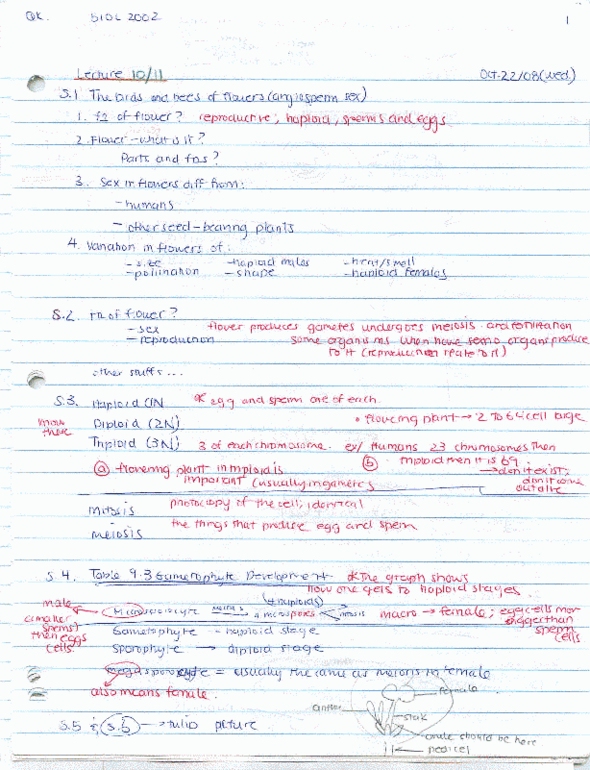 QK. BIOL 2002 1
Lecture 10/11 Oct-22/08 (wed.)
S.1 The birds and bees of flowers (angiosperm sex)
1. fn of flower? reproductive; haploid, sperms and eggs
2. Flower - what is it?
Parts and fns?
3. Sex in flowers diff from:
- humans
- other seed-bearing plants
4. Variation in flowers of:
- size - haploid males - heat/smell
- pollination - shape - haploid females
S.2 fn of flower?
- sex flower produces gametes undergoes meiosis and fertilization
- reproduction some organisms when have sex no organs produce
to it (reproduction relate to it)
other stuffs...
S.3. Haploid (1N) * egg and sperm one of each.
know these Diploid (2N) • flowering plant → 2 to 64 cell large
Triploid (3N) 3 of each chromosome. ex/ Humans 23 chromosomes then
(a) flowering plant in triploid is (b) triploid then it is 69
important (usually in gametes) → don't exist;
don't come out alive
mitosis photocopy of the cell; identical
meiosis the things that produce egg and sperm
S.4. Table 9.3 Gametophyte Development * The graph shows
how one gets to haploid stages
male (4 haploids)
(smaller sperms) then eggs cells. Microsporocyte meiosis → 4 microspores mitosis macro → female; egg cells mor
bigger than sperm cells
Gametophyte - haploid stage
Sporophyte → diploid stage
megasporocyte = usually the same as meiosis in female
also means female.
S.5 & S.6 → tulip picture
female
anther
stalk
ovule should be here
pedicel